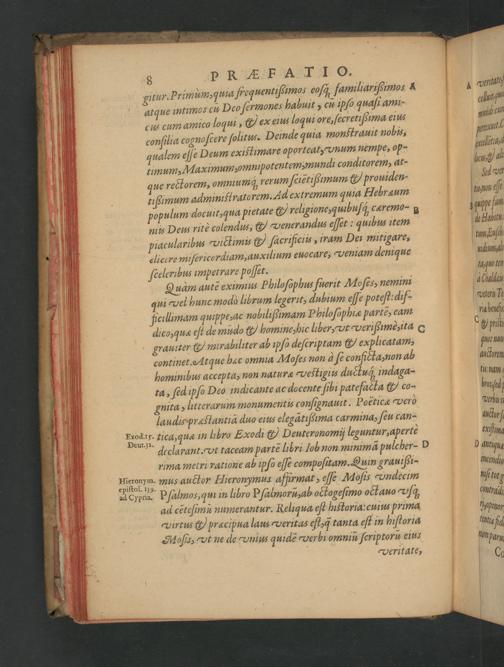 8 PRÆFATIO.
gitur. Primùm, quia frequentißimos eosq́; familiarißimos A
atque intimos cū Deo sermones habuit, cū ipso quasi ami-
cus cum amico loqui, & ex eius loqui ore, secretißima eius
consilia cognoscere solitus. Deinde quia monstrauit nobis,
qualem esse Deum existimare oporteat, vnum nempe, op-
timum, Maximum, omnipotentem, mundi conditorem, at-
que rectorem, omniumq́; rerum sciētißimum & prouiden-
tißimum administratorem. Ad extremum quia Hebræum
populum docuit, qua pietate & religione, quibusq́; cæremo- B
niis Deus ritè colendus, & venerandus esset: quibus item
piacularibus victimis & sacrificiis, iram Dei mitigare,
elicere misericordiam, auxilium euocare, veniam denique
sceleribus impetrare posset.
Quàm autē eximius Philosophus fuerit Moses, nemini
qui vel hunc modò librum legerit, dubium esse potest: dif-
ficillimam quippe, ac nobilißimam Philosophiæ partē, eam
dico, quæ est de mūdo & homine, hic liber, vt verißimè, ita C
grauiter & mirabiliter ab ipso descriptam & explicatam,
continet. Atque hæc omnia Moses non à se conficta, non ab
hominibus accepta, non naturæ vestigiis ductuq́; indaga-
ta, sed ipso Deo indicante ac docente sibi patefacta & co-
gnita, litterarum monumentis consignauit. Poëticæ verò
laudis præstantiā duo eius elegātißima carmina, seu can-
Exod. 15. tica, quæ in libro Exodi & Deuteronomij leguntur, apertè
Deut. 32. declarant. vt taceam partē libri Iob non minimā pulcher- D
rima metri ratione ab ipso esse compositam. Quin grauißi-
Hieronym. mus auctor Hieronymus affirmat, esse Mosis vndecim
epistol. 139. Psalmos, qui in libro Psalmorū, ab octogesimo octauo vsq́;
ad Cypria. ad cētesimū numerantur. Reliqua est historia: cuius prima
virtus & præcipua laus veritas est, q̄ tanta est in historia
Mosis, vt ne de vnius quidē verbi omniū scriptorū eius
veritate,